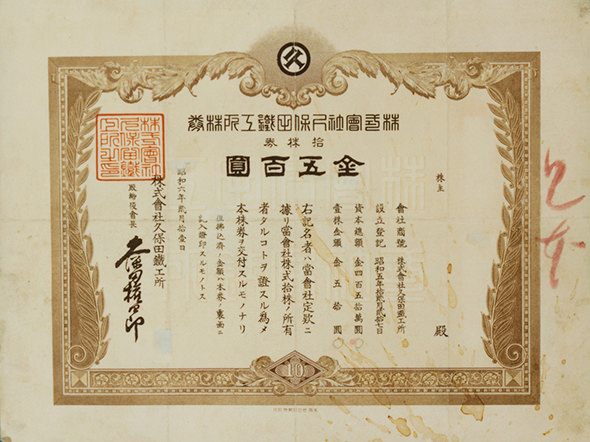 久
株式會社久保田鐵工所株券
拾株券
金五百圓
株主
殿
會社商號 株式會社久保田鐵工所
設立登記 昭和五年拾貳月貳拾七日
資本總額 金四百五拾萬圓
壹株金額 金五拾圓
右記名者ハ當會社定款ニ
據リ當會社株式拾株ノ所有
者タルコトヲ證スル為メ
本株券ヲ交付スルモノナリ
但拂込濟ノ金額ハ本券ノ裏面ニ
記入證印スルモノトス
昭和六年貳月拾壹日
株式會社久保田鐵工所
取締役會長
久保田權四郎
10